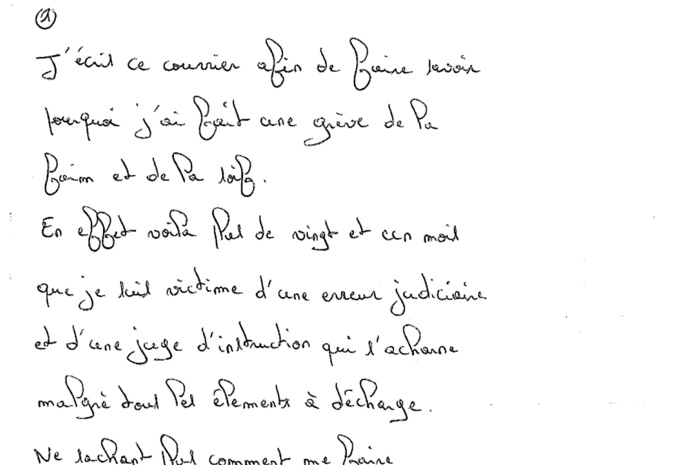 ①
J'écris ce courrier afin de faire savoir
pourquoi j'ai fait une grève de la
faim et de la soif.
En effet voilà plus de vingt et un mois
que je suis victime d'une erreur judiciaire
et d'une juge d'instruction qui s'acharne
malgré tous les élements à décharge.
Ne sachant plus comment me faire